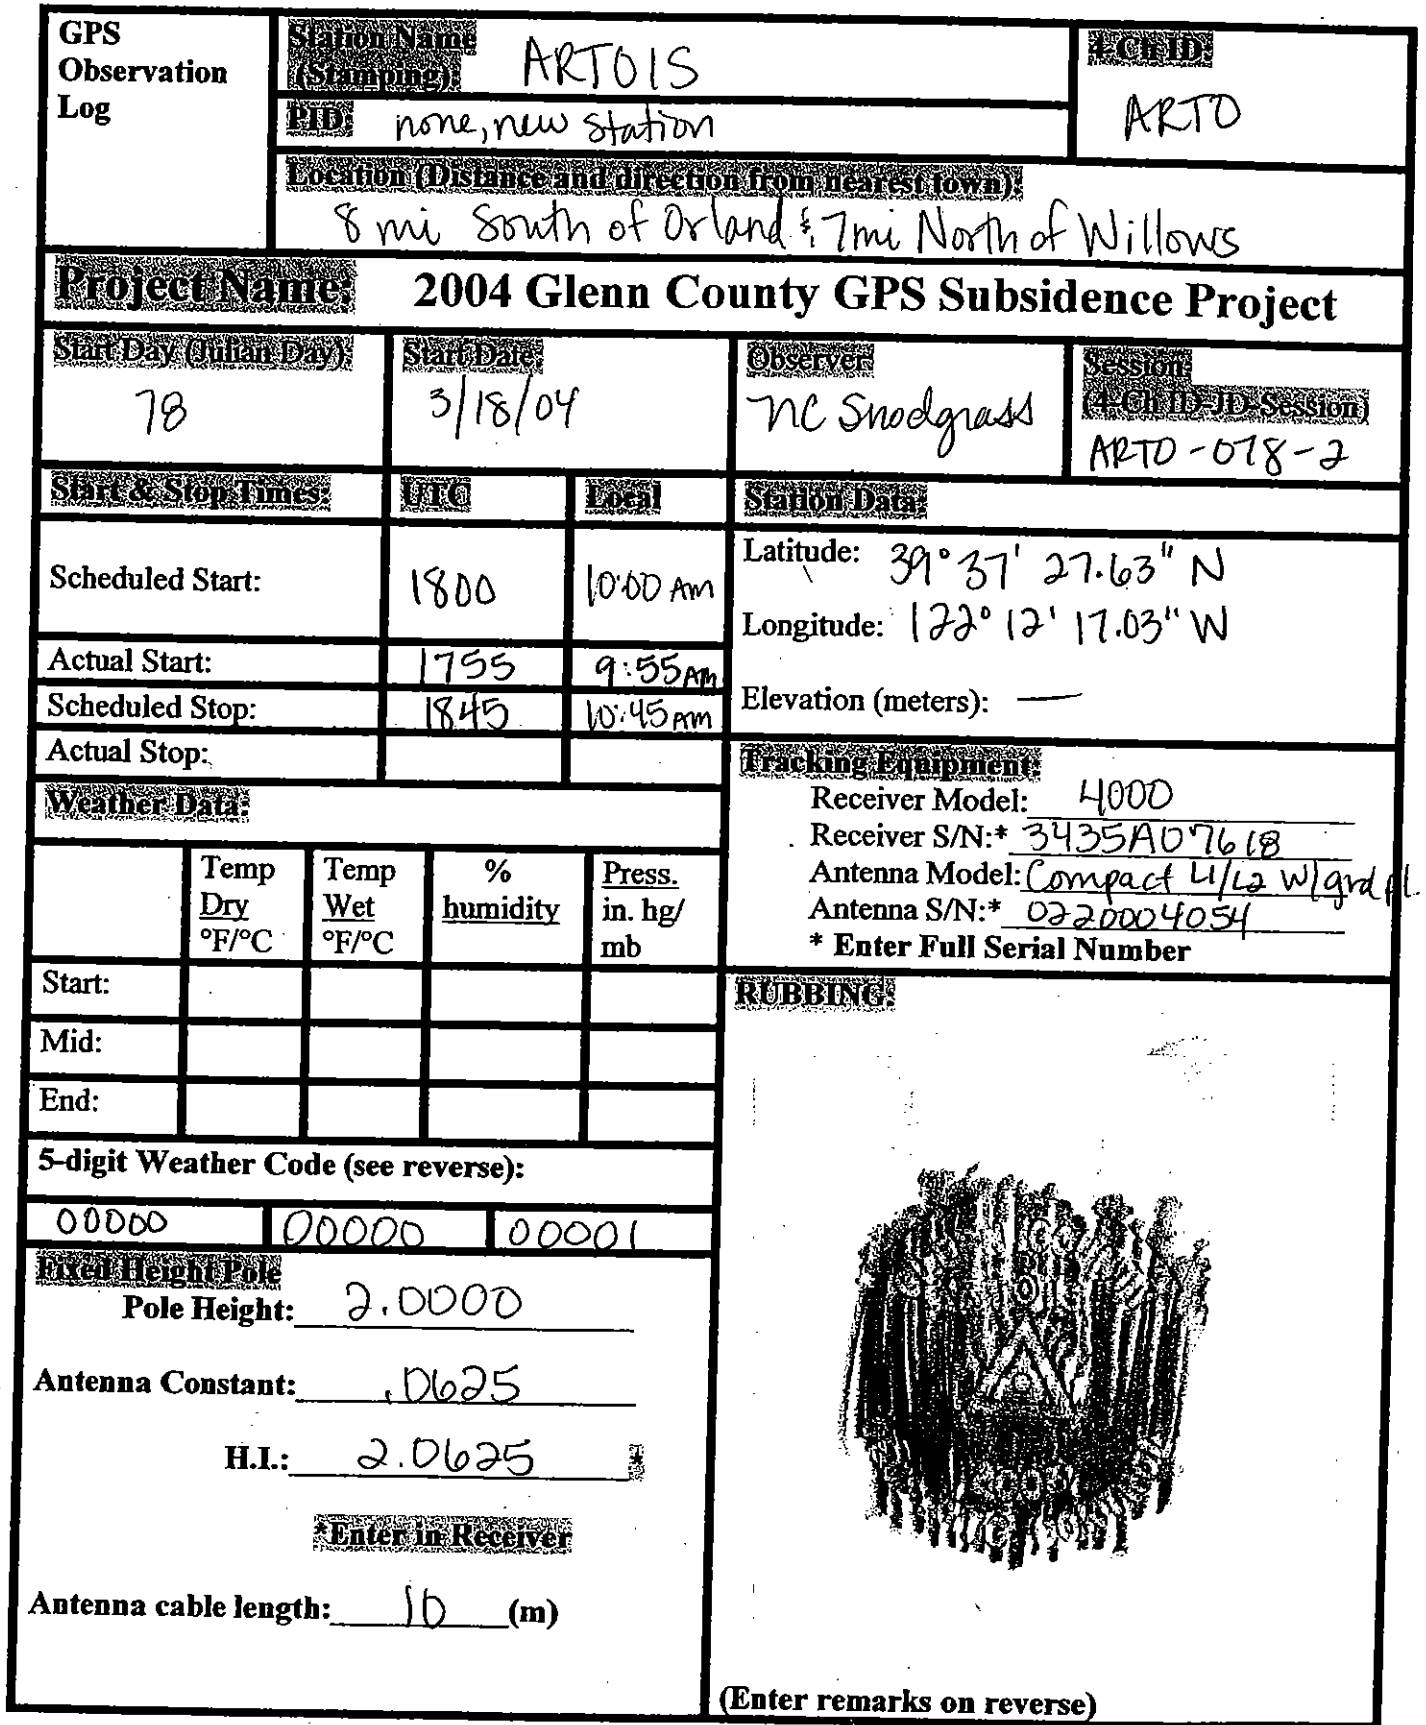 GPS
Observation
Log
Station Name
(Stamping): ARTOIS
4-Ch ID:
ARTO
PID: none, new station
Location (Distance and direction from nearest town):
8 mi South of Orland & 7mi North of Willows
Project Name: 2004 Glenn County GPS Subsidence Project
Start Day (Julian Day):
78
Start Date:
3/18/04
Observer:
NC Snodgrass
Session:
(4-Ch ID-JD-Session)
ARTO-078-2
Start & Stop Times: UTC Local
Scheduled Start: 1800 10:00 AM
Actual Start: 1755 9:55 AM
Scheduled Stop: 1845 10:45 AM
Actual Stop:
Station Data:
Latitude: 39° 37' 27.63" N
Longitude: 122° 12' 17.03" W
Elevation (meters): —
Tracking Equipment:
Receiver Model: 4000
Receiver S/N:* 3435A07618
Antenna Model: Compact L1/L2 w/grd pl.
Antenna S/N:* 0220004054
* Enter Full Serial Number
Weather Data:
Temp
Dry
°F/°C
Temp
Wet
°F/°C
%
humidity
Press.
in. hg/
mb
Start:
Mid:
End:
5-digit Weather Code (see reverse):
00000 00000 00001
Fixed Height Pole
Pole Height: 2.0000
Antenna Constant: .0625
H.I.: 2.0625 *
*Enter in Receiver
Antenna cable length: 10 (m)
RUBBING:
(Enter remarks on reverse)